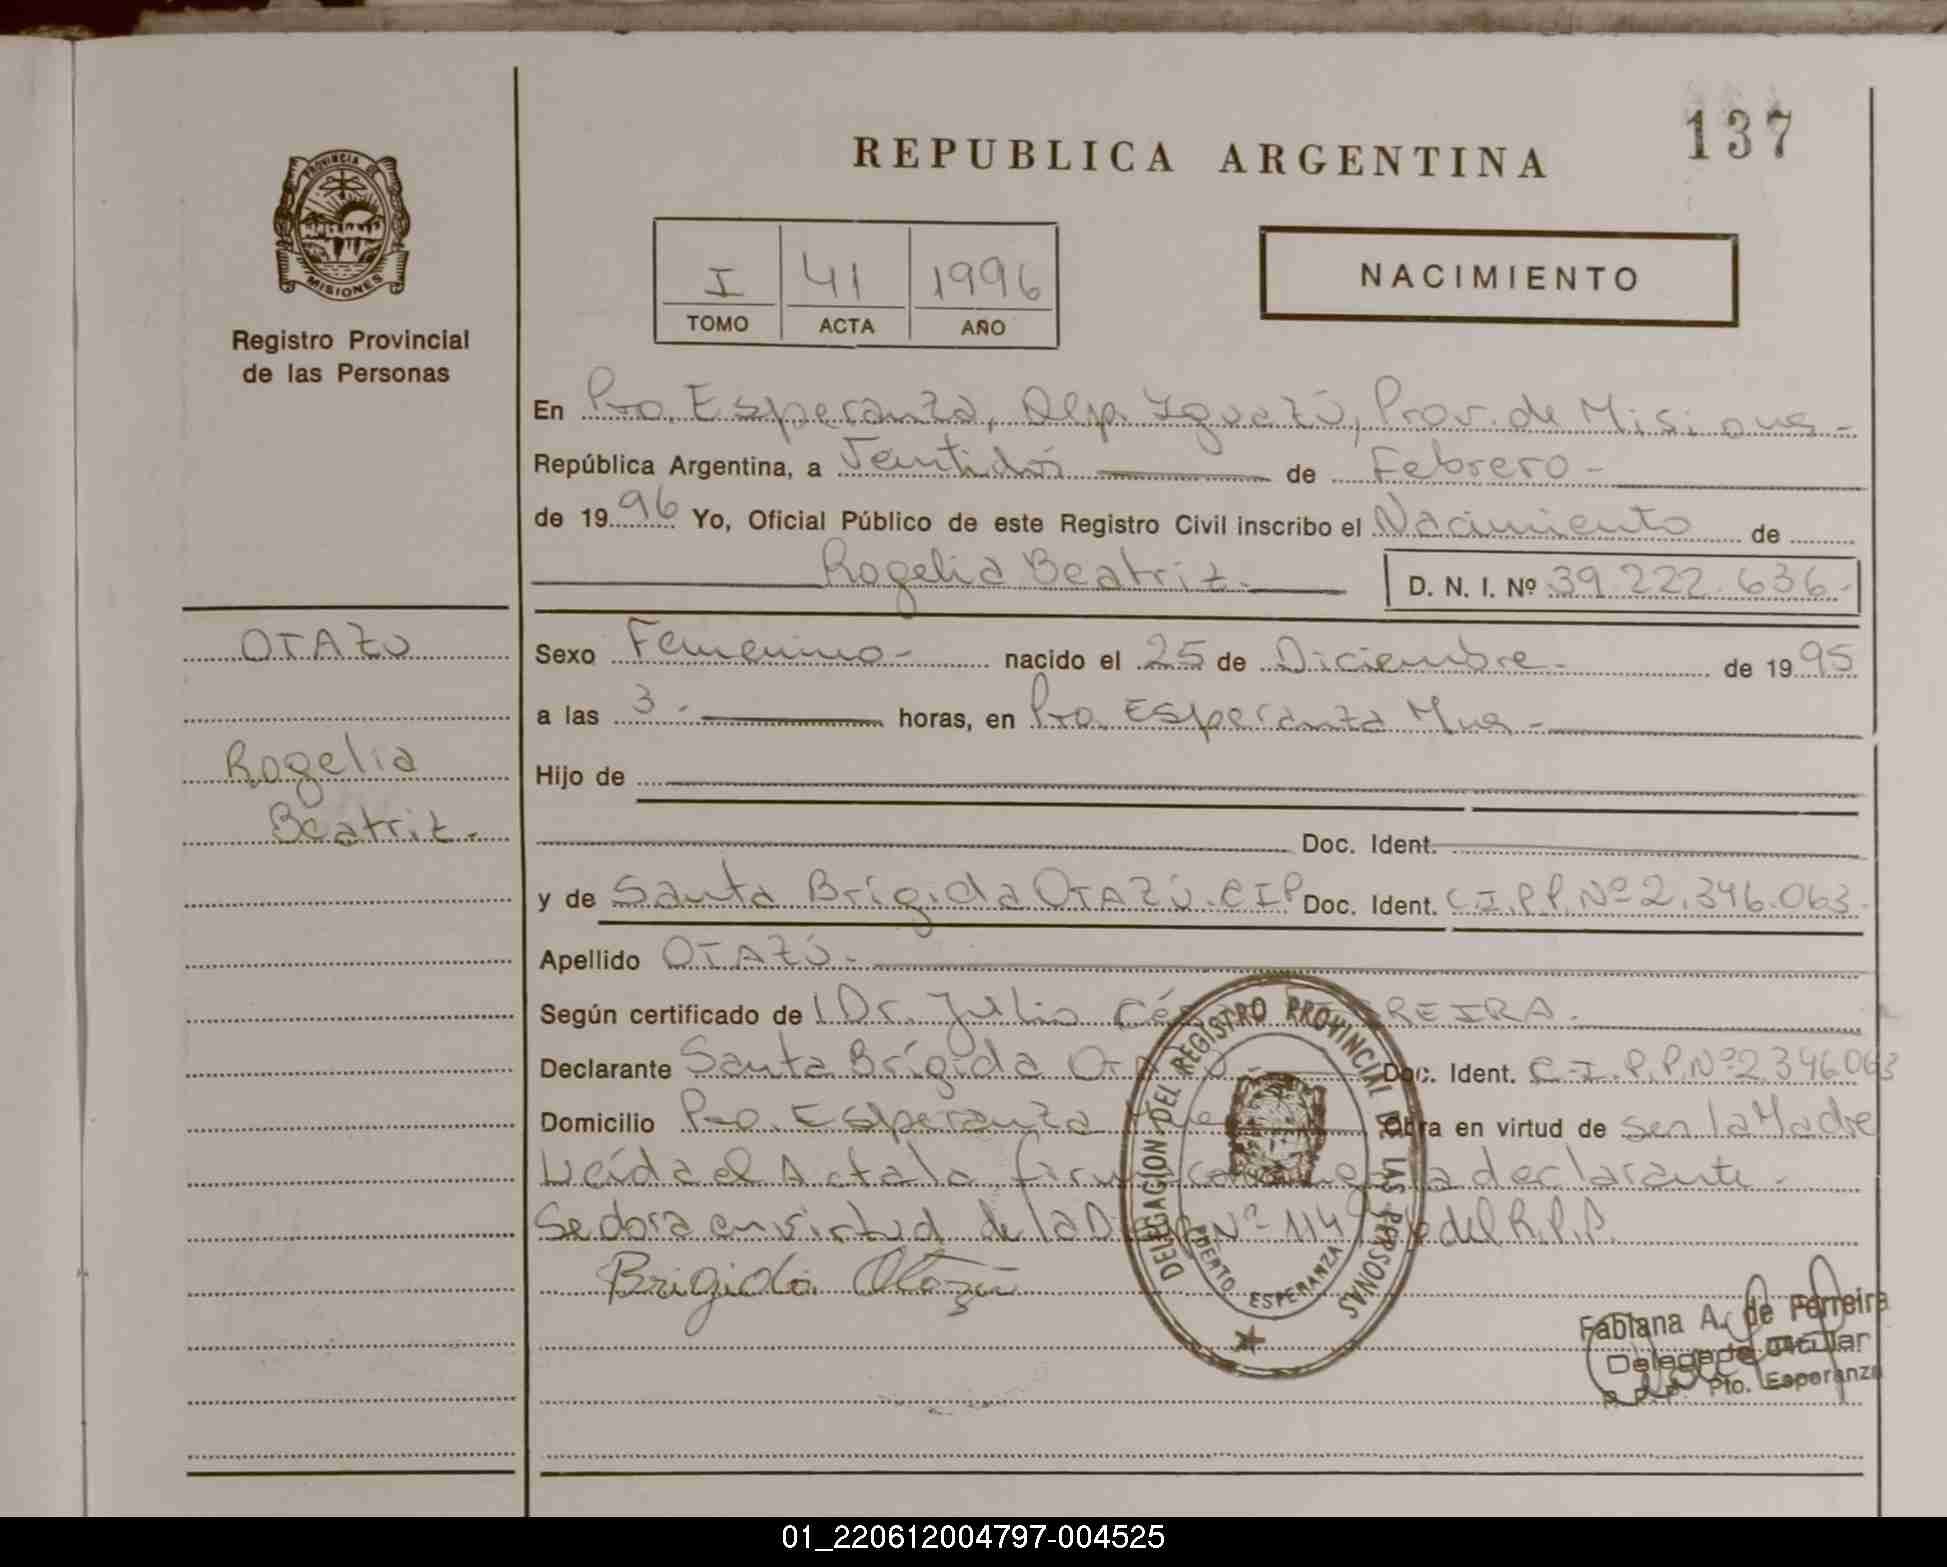 137
REPUBLICA ARGENTINA
PROVINCIA DE
MISIONES
Registro Provincial
de las Personas
I 41 1996
TOMO ACTA AÑO
NACIMIENTO
En Pto. Esperanza, Dep. Iguazú, Prov. de Misiones-
República Argentina, a Veintidós de Febrero-
de 1996 Yo, Oficial Público de este Registro Civil inscribo el Nacimiento de
Rogelia Beatriz.
D. N. I. Nº 39.222.636.-
OTAZU
Rogelia
Beatriz.-
Sexo Femenino- nacido el 25 de Diciembre- de 1995
a las 3.- horas, en Pto. Esperanza Mnes-
Hijo de
Doc. Ident.
y de Santa Brígida OTAZÚ. CIP Doc. Ident. C.I.P.P. Nº 2.346.063.
Apellido OTAZÚ.-
Según certificado de l Dr. Julio REIRA.
Declarante Santa Brígida Doc. Ident. C.I.P.P. Nº 2.346.063
Domicilio Pto. Esperanza Obra en virtud de ser la Madre
Leída el Acta la declarante.-
Se dora en virtud de la Nº 114 del R.P.P.
Brigida Otazú
DELEGACION DEL REGISTRO PROVINCIAL DE LAS PERSONAS
PUERTO ESPERANZA
Fabiana A. de Ferreira
Delegada Titular
R. P. P. Pto. Esperanza
01_220612004797-004525